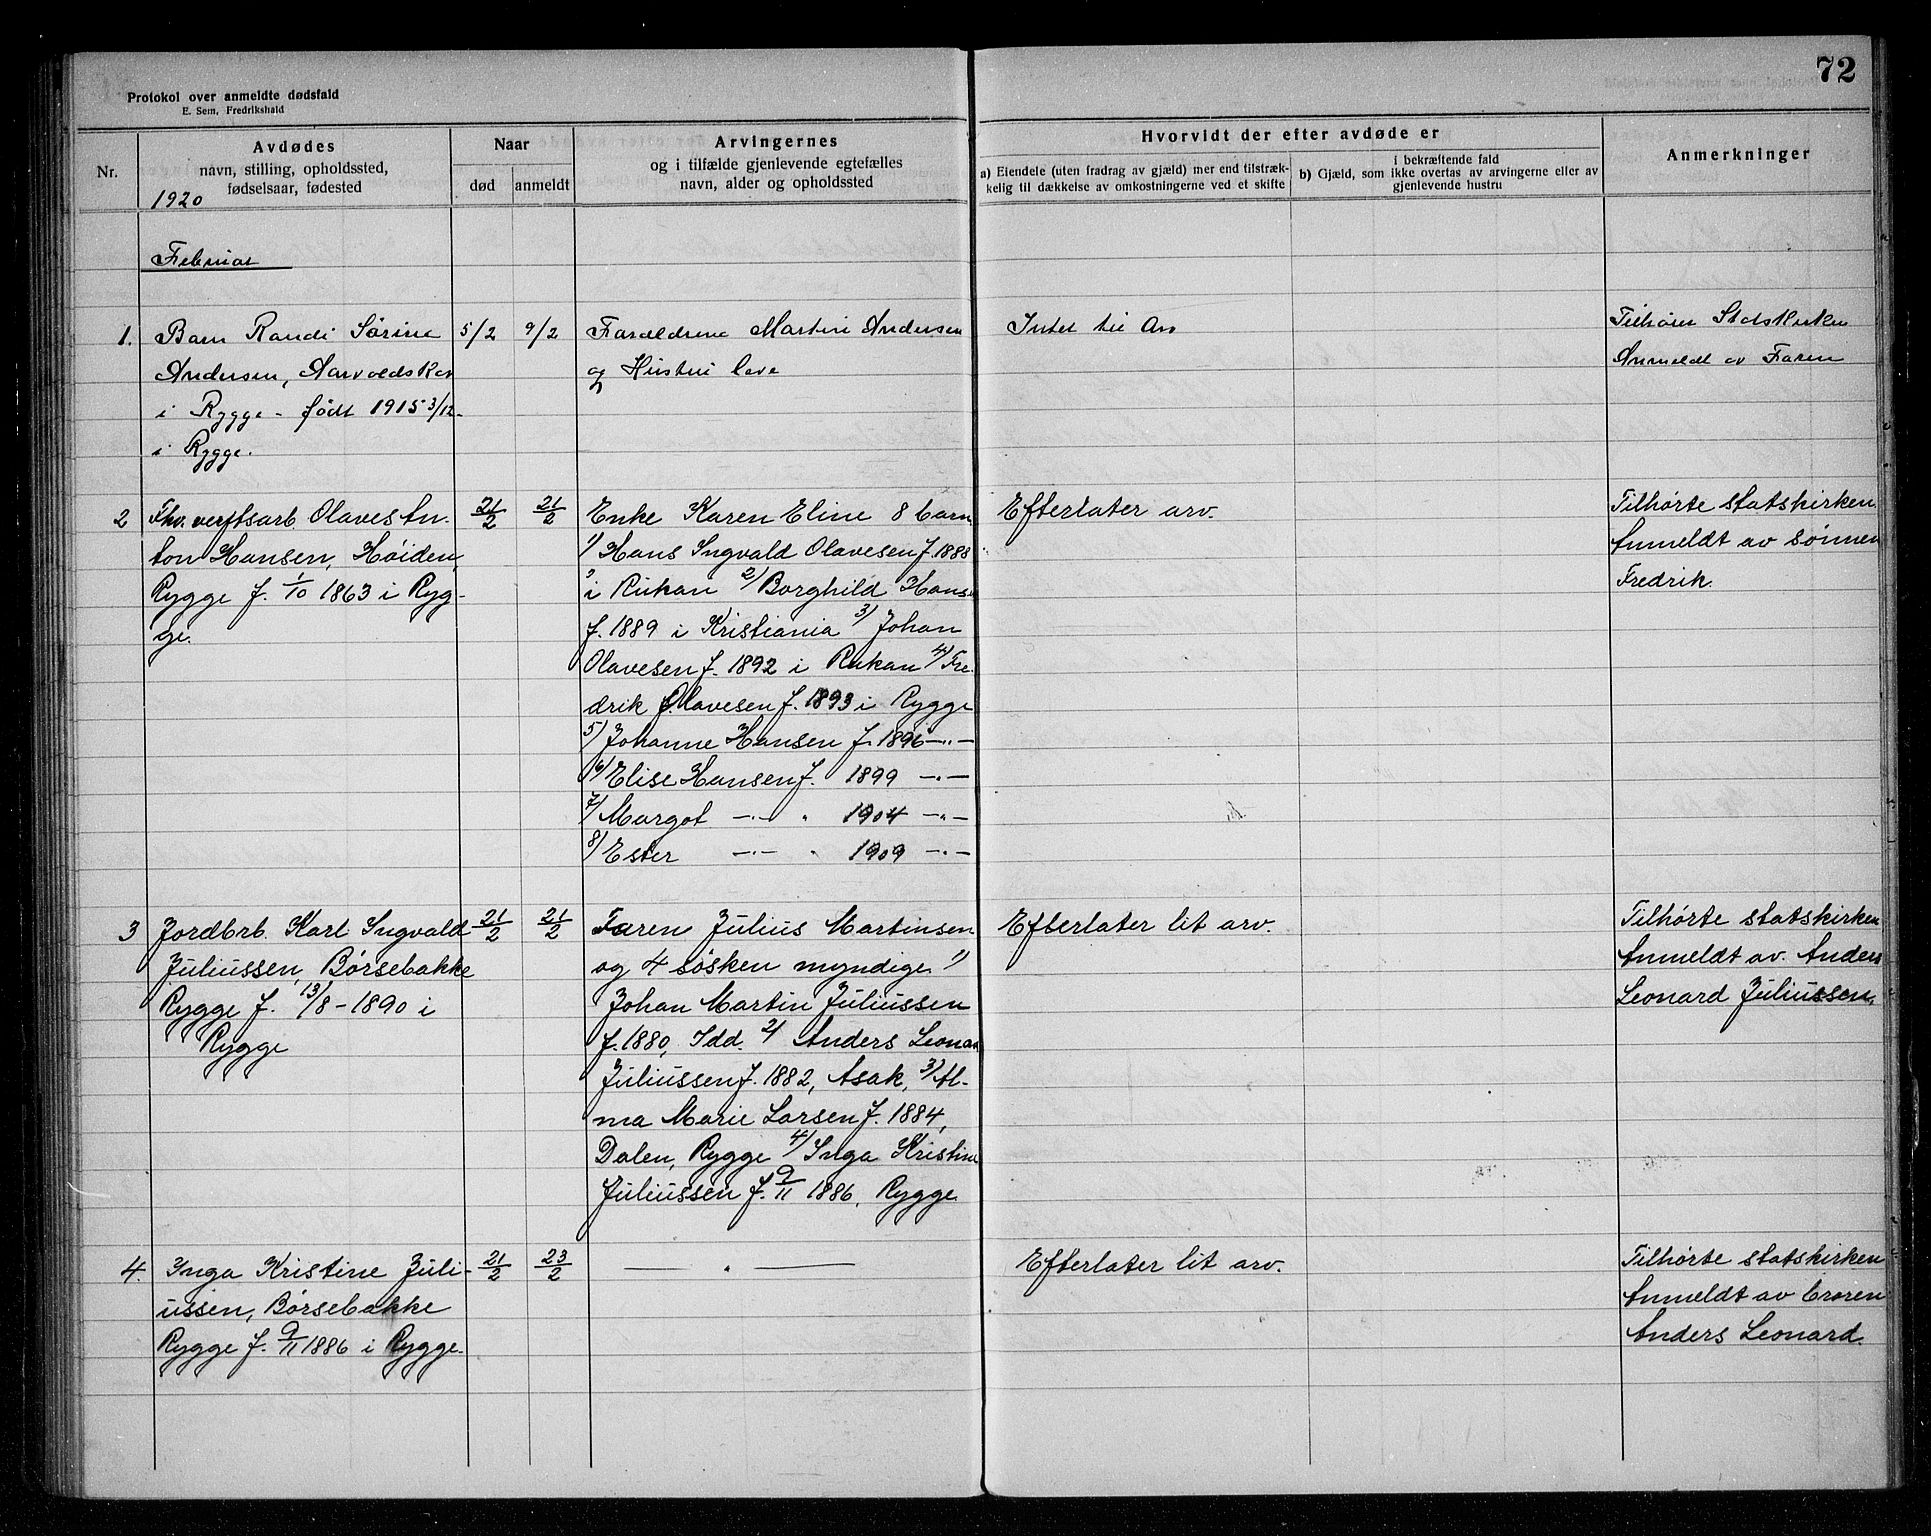 72
Protokol over anmeldte dødsfald
E. Sem, Fredrikshald
Nr.
Avdødes
navn, stilling, opholdssted,
fødselsaar, fødested
Naar
død
anmeldt
Arvingernes
og i tilfælde gjenlevende egtefælles
navn, alder og opholdssted
Hvorvidt der efter avdøde er
a) Eiendele (uten fradrag av gjæld) mer end tilstræk-
kelig til dækkelse av omkostningerne ved et skifte
i bekræftende fald
b) Gjæld, som ikke overtas av arvingerne eller av
gjenlevende hustru
Anmerkninger
1920
Februar
1.
Barn Randi Sørine
Andersen, Aarvoldskov
i Rygge - født 1915 3/12-
i Rygge.
5/2
9/2
Foræeldrene Martin Andersen
og Hustru leve
Intet til Arv
Tilhører Statskirken
Anmeldt av Faren
2
Fhv. verftsarb Olaves An-
ton Hansen, Høiden,
Rygge f. 1/10 1863 i Ryg-
ge.
21/2
21/2
Enke Karen Eline 8 barn
1) Hans Ingvald Olavesen f. 1888
i Rukan 2) Borghild Hans
f. 1889 i Kristiania 3) Johan
Olavesen f. 1892 i Rukan 4) Fre-
drik Olavesen f. 1893 i Rygge
5) Johanne Hansen f. 1896 —"—
6) Elise Hansen f. 1899 —"—
7) Margot —"— " 1904 —"—
8) Ester —"— " 1909 —"—
Efterlater arv.
Tilhørte statskirken
Anmeldt av sønnen
Fredrik.
3
Jordbrb. Karl Ingvald
Juliussen, Børsebakke
Rygge f. 13/8-1890 i
Rygge
21/2
21/2
Faren Julius Martinsen
og 4 søsken myndige. 1)
Johan Martin Juliussen
f. 1880, Idd. 2) Anders Leonar
Juliussen f. 1882, Asak, 3) Al-
ma Marie Larsen f. 1884,
Dalen, Rygge 4) Inga Kristine
Juliussen f. 9/11 1886, Rygge.
Efterlater lit arv.
Tilhørte statskirken
Anmeldt av Anders
Leonard Juliussen.
4.
Inga Kristine Juli-
ussen, Børsebakke
Rygge f. 9/11 1886 i Rygge.
21/2
23/2
— " —
Efterlater lit arv.
Tilhørte statskirken
Anmeldt av broren
Anders Leonard.